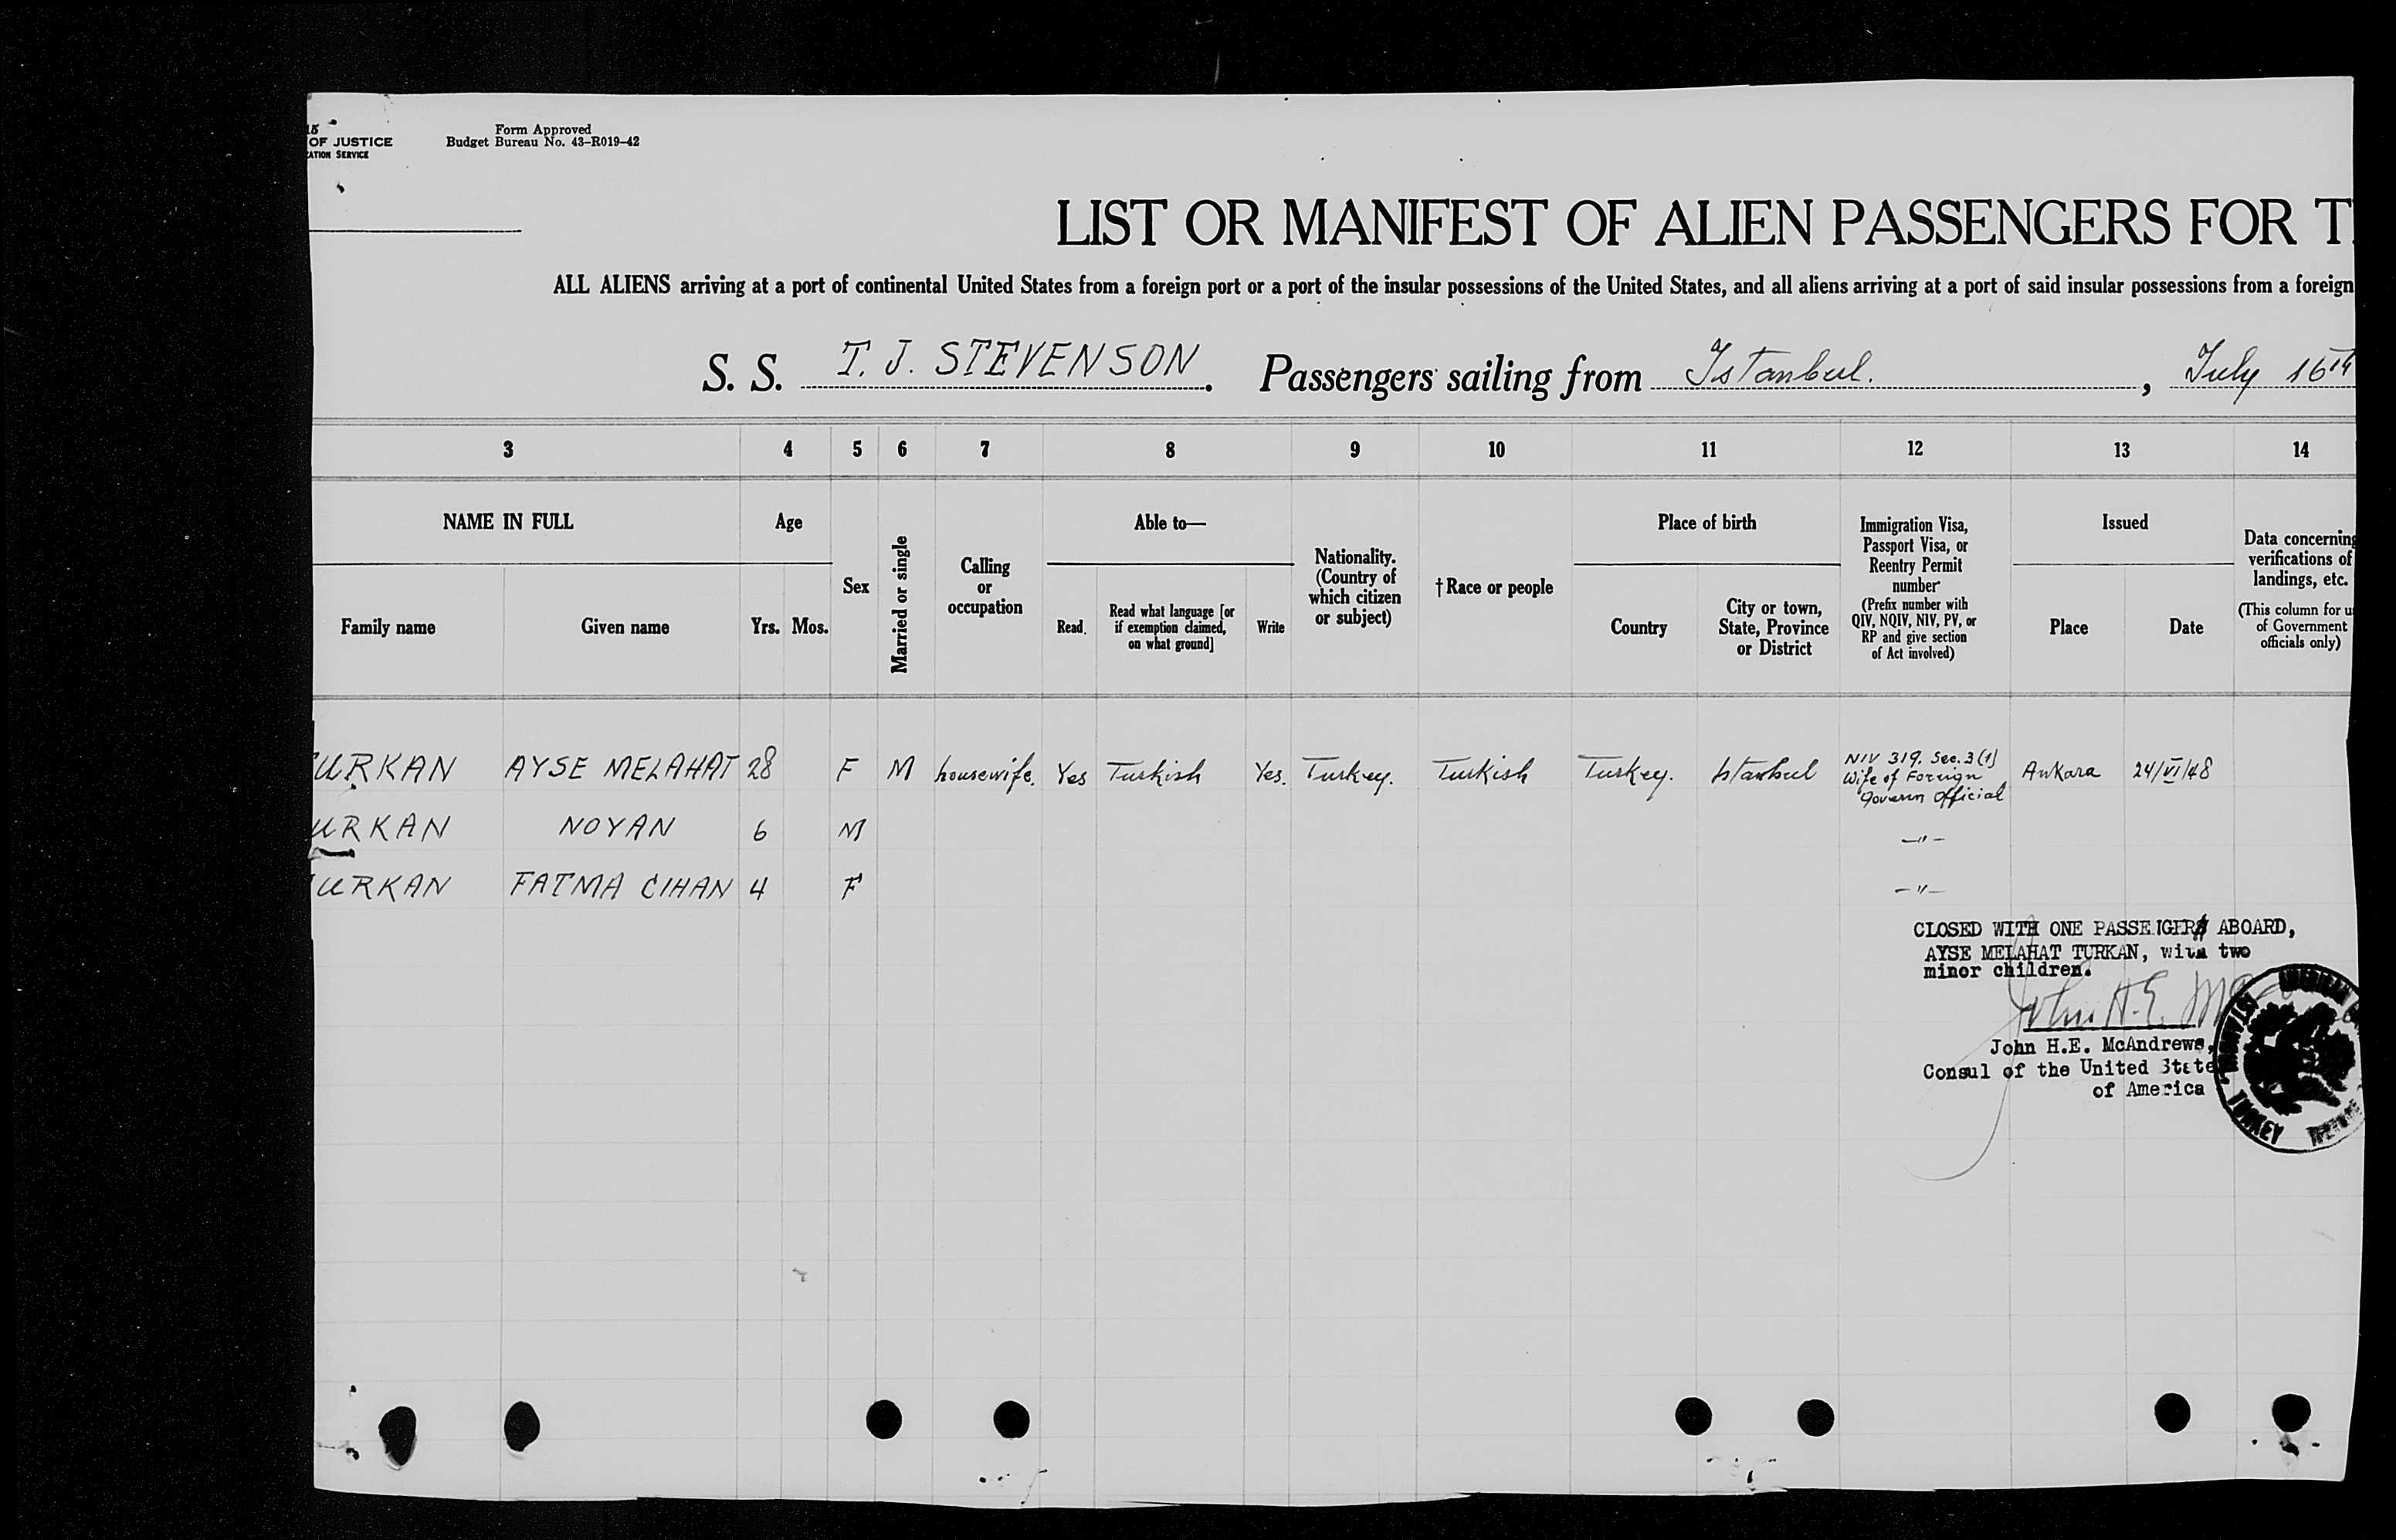 15
OF JUSTICE
ATION SERVICE
Form Approved
Budget Bureau No. 43-R019-42
LIST OR MANIFEST OF ALIEN PASSENGERS FOR T
ALL ALIENS arriving at a port of continental United States from a foreign port or a port of the insular possessions of the United States, and all aliens arriving at a port of said insular possessions from a foreign
S. S. T. J. STEVENSON. Passengers sailing from Istanbul., July 16th
3 4 5 6 7 8 9 10 11 12 13 14
NAME IN FULL
Family name
Given name
Age
Yrs. Mos.
Sex
Married or single
Calling
or
occupation
Able to—
Read
Read what language [or
if exemption claimed,
on what ground]
Write
Nationality.
(Country of
which citizen
or subject)
†Race or people
Place of birth
Country
City or town,
State, Province
or District
Immigration Visa,
Passport Visa, or
Reentry Permit
number
(Prefix number with
QIV, NQIV, NIV, PV, or
RP and give section
of Act involved)
Issued
Place
Date
Data concerning
verifications of
landings, etc.
(This column for u
of Government
officials only)
URKAN AYSE MELAHAT 28 F M housewife. Yes Turkish Yes. Turkey. Turkish Turkey. Istanbul NIV 319. Sec. 3(1) Ankara 24/VI/48
Wife of Foreign
Govern Official
URKAN NOYAN 6 M —"—
URKAN FATMA CIHAN 4 F —"—
CLOSED WITH ONE PASSENGER ABOARD,
AYSE MELAHAT TURKAN, with two
minor children.
John H.E. Mc
John H.E. McAndrews,
Consul of the United State
of America
AMERICAN
ISTANBUL,
TURKEY